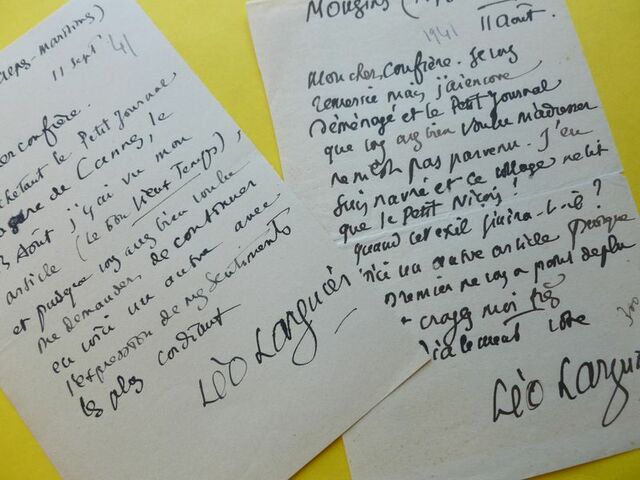 (Alpes-Maritimes)
11 Sept 41
cher confrère.
achetant le Petit Journal
gare de Cannes, le
3 Août j'y ai vu mon
article (le bon vieux Temps),
et puisque vous avez bien voulu
me demander de continuer
en voici un autre avec
l'expression de mes sentiments
les plus cordiaux
Léo Larguier
Mougins
1941
11 Août.
Mon cher confrère. Je vous
remercie mais j'ai encore
Déménagé et le Petit Journal
que vous avez bien voulu m'adresser
ne m'est pas parvenu. J'en
suis navré et ce village ne lit
que le Petit Niçois!
quand cet exil finira-t-il?
Voici un autre article puisque
premier ne vous a point déplu
croyez moi très
cordialement votre
300
Léo Larguier